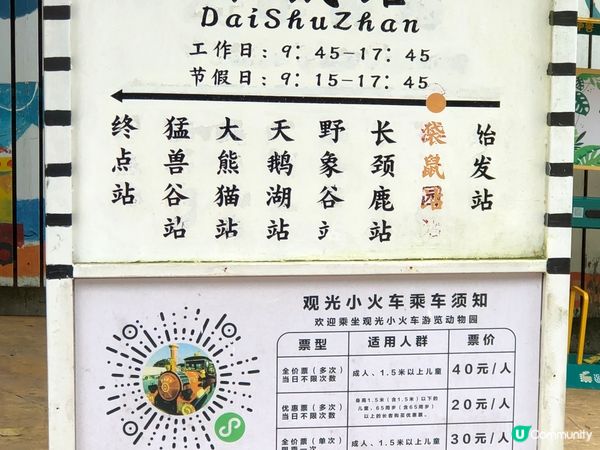 DaiShuZhan
工作日: 9: 45-17: 45
节假日: 9: 15-17: 45
终点站
猛兽谷站
大熊猫站
天鹅湖站
野象谷
长颈鹿站
袋鼠园站
始发站
观光小火车乘车须知
欢迎乘坐观光小火车游览动物园
票型 适用人群 票价
全价票（多次）
当日不限次数
成人、1.5米以上儿童
40元/人
优惠票（多次）
当日不限次数
身高1.5米（含1.5米）以下的
儿童，65周岁（含65周岁）
以上的长者购买优惠票。
20元/人
全价票（单次）
成人、1.5米以上儿童
30元/人
U Community